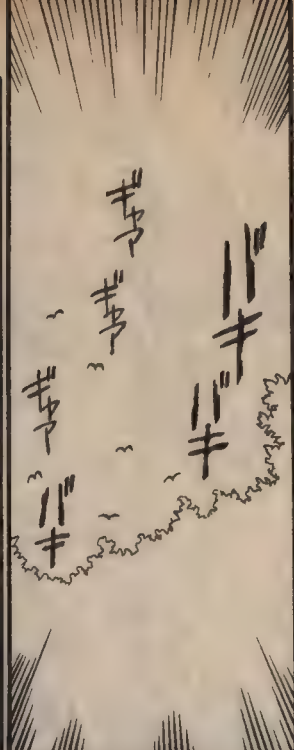 バキ
バキ
ギャア
ギャア
ギャア
バキ